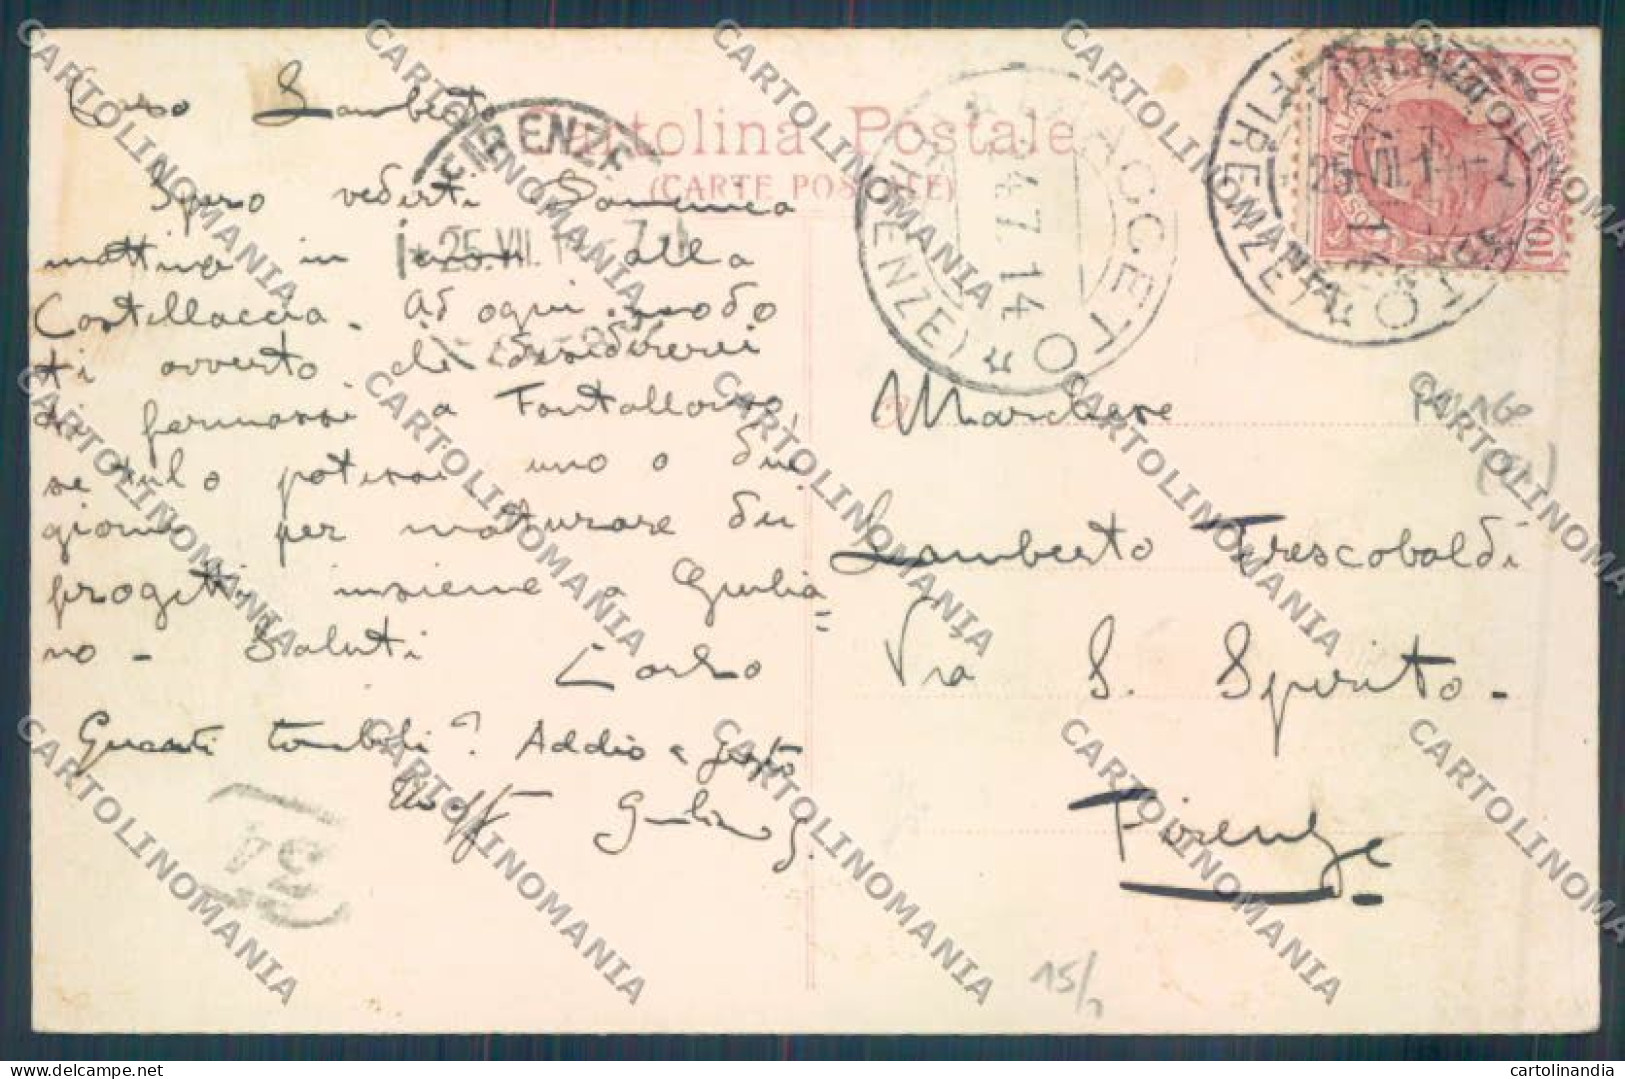 Cartolina Postale
(CARTE POSTALE)
Caro Lamberto
Spero vederti Domenica
mattina in alla
Castellaccia. Ad ogni modo
ti avverto che desidererei
di fermarsi a Fontallorso,
se tu lo potessi uno o due
giorni per maturare dei
progetti insieme a Giulia=
no - Saluti Carlo
Quanti tomboli? Addio a presto
Giuliano
FIRENZE
25.VII.1
ACCETO
(FIRENZE)
24.7.14
25.VII.1
(FIRENZE)
10
10
Marchese
Lamberto Frescobaldi
Via S. Spirito -
Firenze
15/
CARTOLINOMANIA
cartolinandia